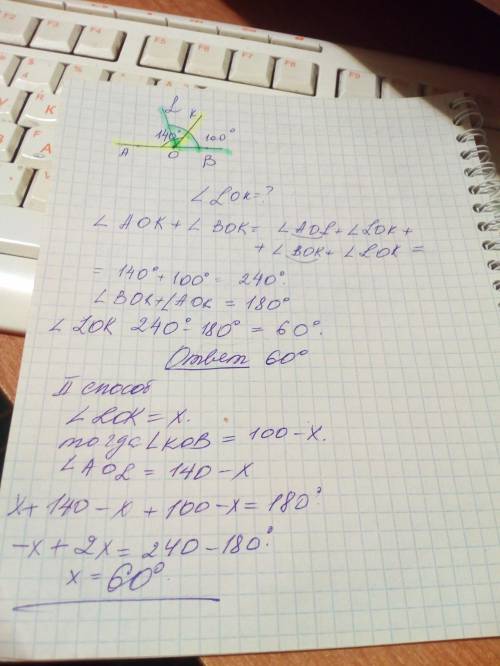 L K
140° 100°
A O B
∠LOK=?
∠AOK + ∠BOK = ∠AOL + ∠LOK +
+ ∠BOK + ∠LOK =
= 140° + 100° = 240°.
∠BOK + ∠AOK = 180°
∠LOK 240° - 180° = 60°.
Ответ 60°
II способ
∠LOK = x.
тогда ∠KOB = 100 - x.
∠AOL = 140 - x
x + 140 - x + 100 - x = 180°
-x + 2x = 240 - 180°.
x = 60°.
F3
F4
F5
F6
F7
F8